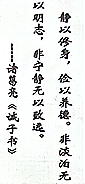 静以修身，俭以养德。非淡泊无
以明志，非宁静无以致远。
——诸葛亮《诫子书》